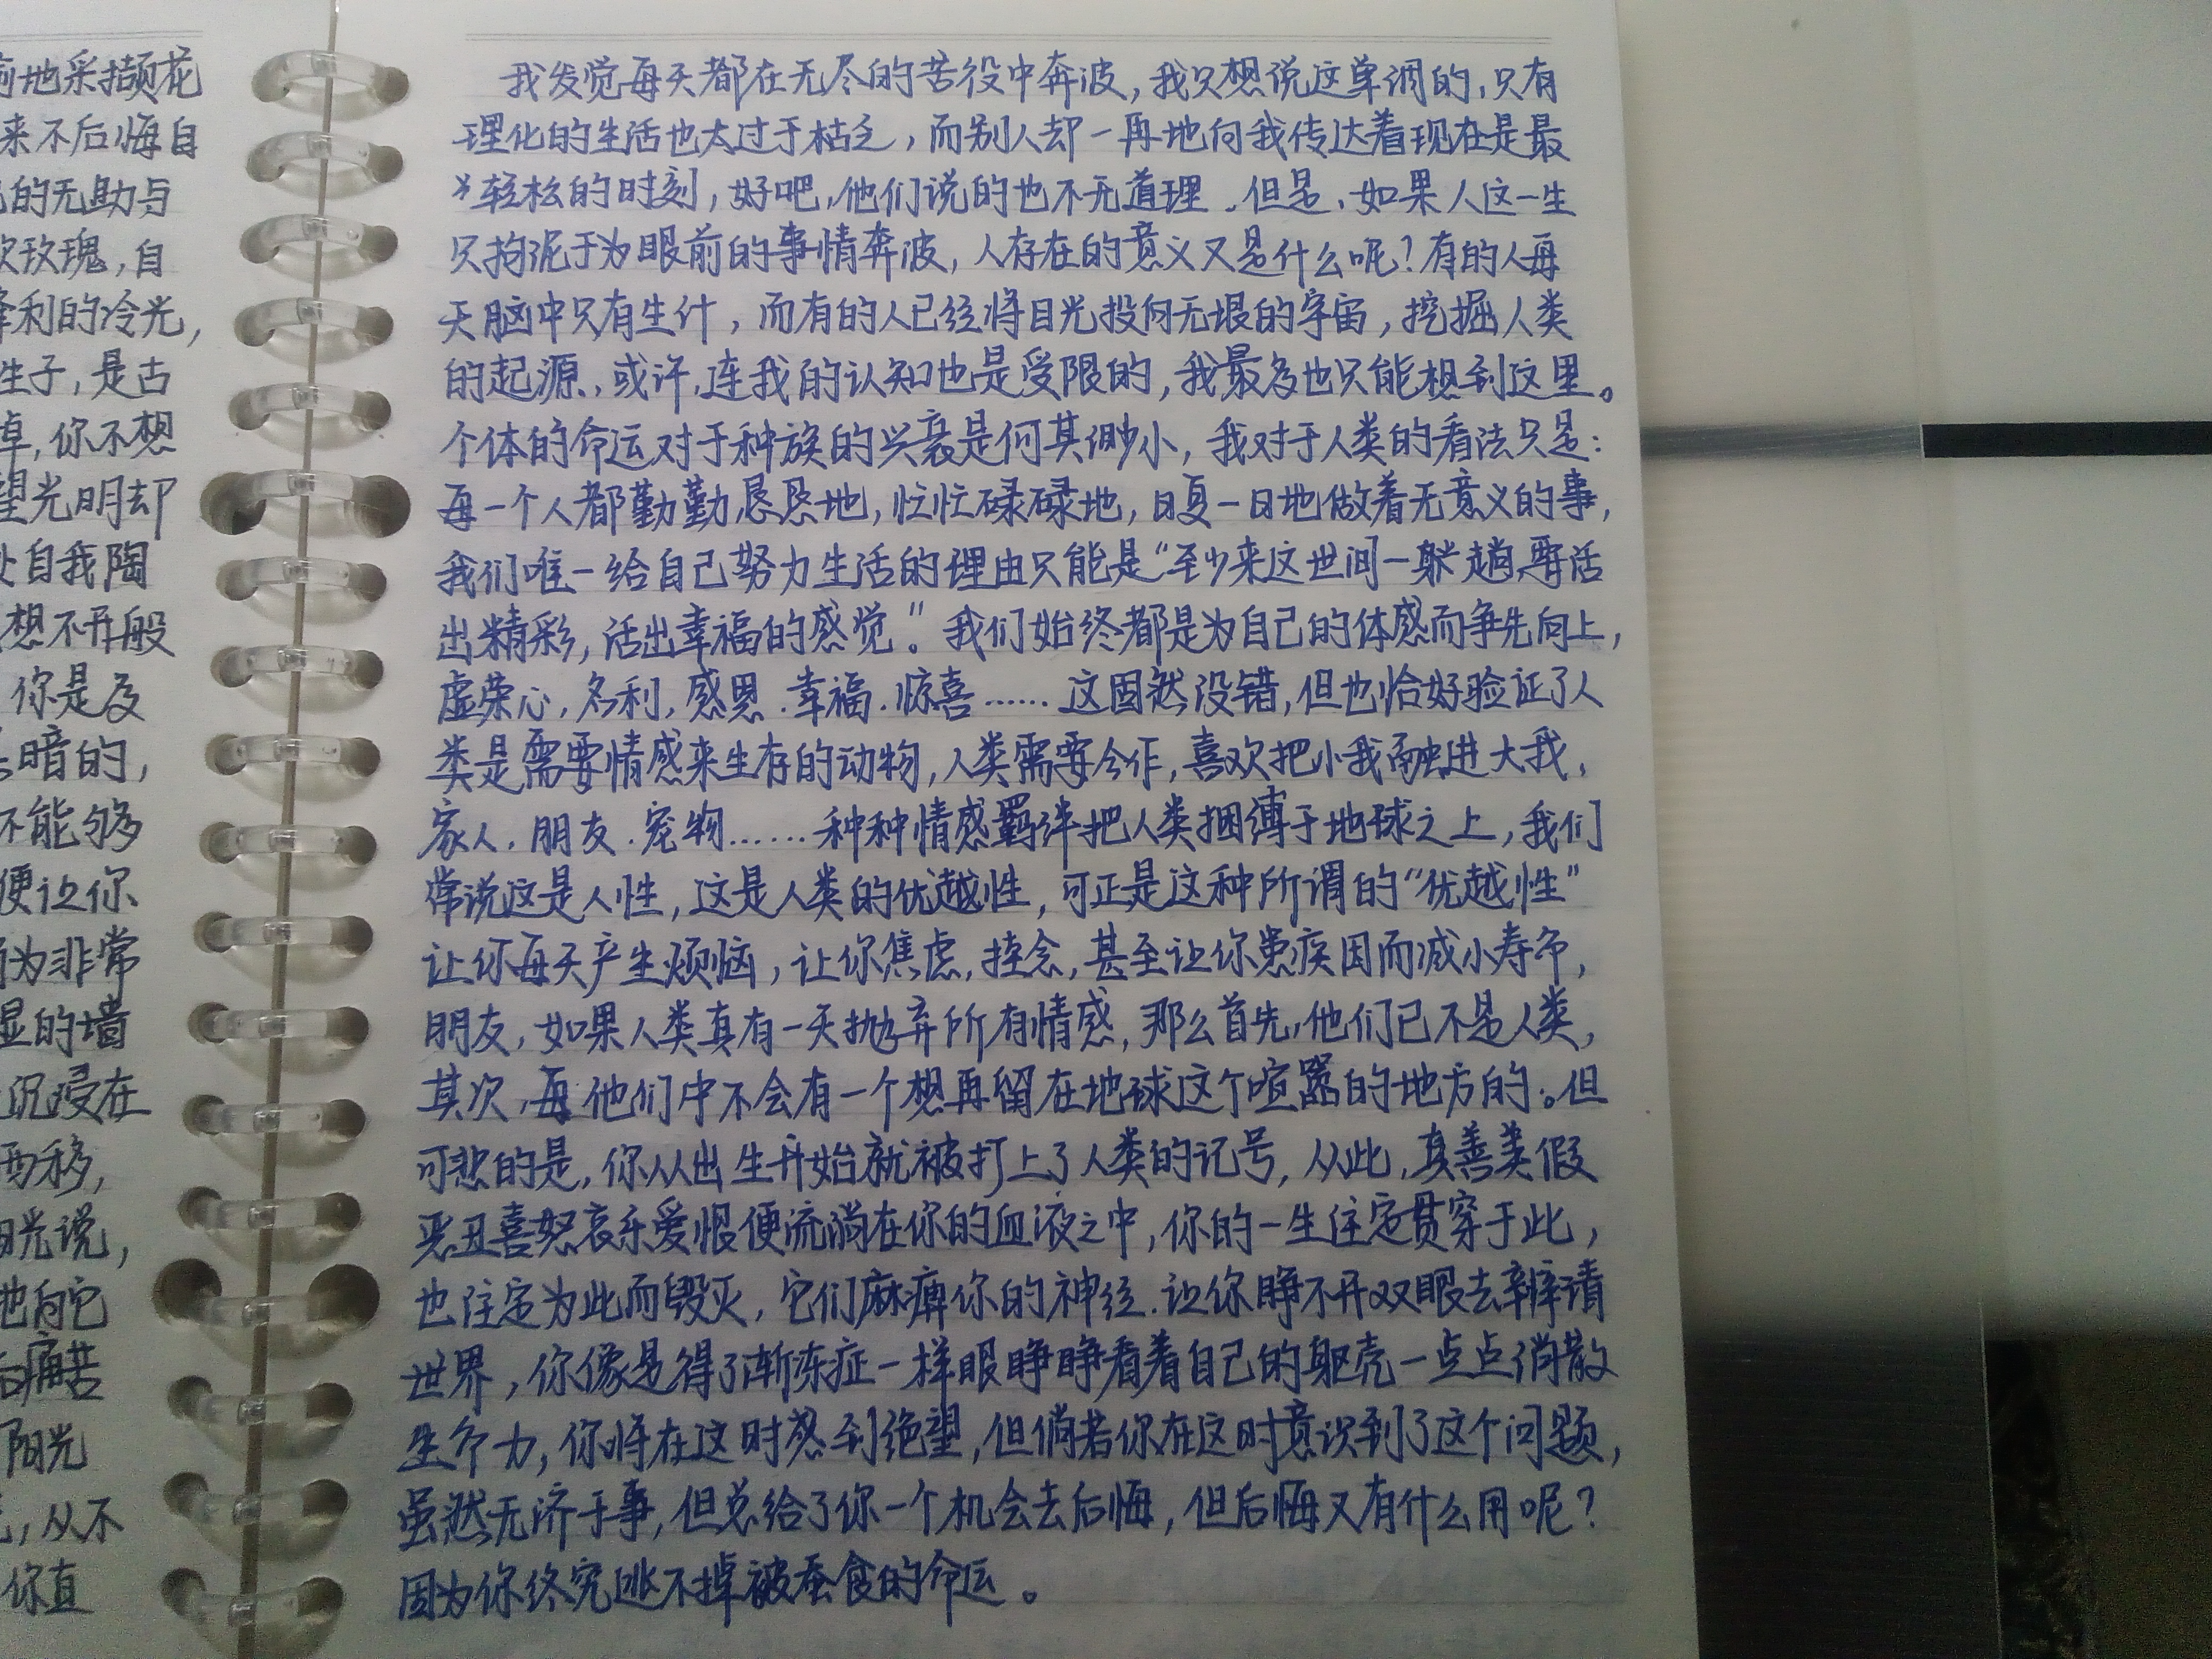 前地采撷花
来不后悔自
的无助与
欢玫瑰,自
锋利的冷光,
生子,是古
草,你不想
望光明却
自我陶
想不开般
你是及
暗的,
不能够
便让你
为非常
湿的墙
沉浸在
西移,
阳光说,
地向它
痛苦
阳光
,从不
你直
我发觉每天都在无尽的苦役中奔波,我只想说这单调的,只有
理化的生活也太过于枯乏,而别人却一再地向我传达着现在是最
轻松的时刻,好吧,他们说的也不无道理.但是,如果人这一生
只拘泥于为眼前的事情奔波,人存在的意义又是什么呢?有的人每
天脑中只有生计,而有的人已经将目光投向无垠的宇宙,挖掘人类
的起源,或许,连我的认知也是受限的,我最多也只能想到这里。
个体的命运对于种族的兴衰是何其渺小,我对于人类的看法只是:
每一个人都勤勤恳恳地,忙忙碌碌地,日复一日地做着无意义的事,
我们唯一给自己努力生活的理由只能是“至少来这世间一趟,要活
出精彩,活出幸福的感觉。”我们始终都是为自己的体感而争先向上,
虚荣心,名利,感恩.幸福.惊喜……这固然没错,但也恰好验证了人
类是需要情感来生存的动物,人类需要合作,喜欢把小我融进大我,
家人.朋友.宠物……种种情感羁绊把人类捆缚于地球之上,我们
常说这是人性,这是人类的优越性,可正是这种所谓的“优越性”
让你每天产生烦恼,让你焦虑,挂念,甚至让你患疾因而减小寿命,
朋友,如果人类真有一天抛弃所有情感,那么首先,他们已不是人类,
其次,他们中不会有一个想再留在地球这个喧嚣的地方的。但
可悲的是,你从出生开始就被打上了人类的记号,从此,真善美假
恶丑喜怒哀乐爱恨便流淌在你的血液之中,你的一生注定贯穿于此,
也注定为此而毁灭,它们麻痹你的神经.让你睁不开双眼去辨清
世界,你像是得了渐冻症一样眼睁睁看着自己的躯壳一点点消散
生命力,你将在这时感到绝望,但倘若你在这时意识到了这个问题,
虽然无济于事,但总给了你一个机会去后悔,但后悔又有什么用呢?
因为你终究逃不掉被蚕食的命运。